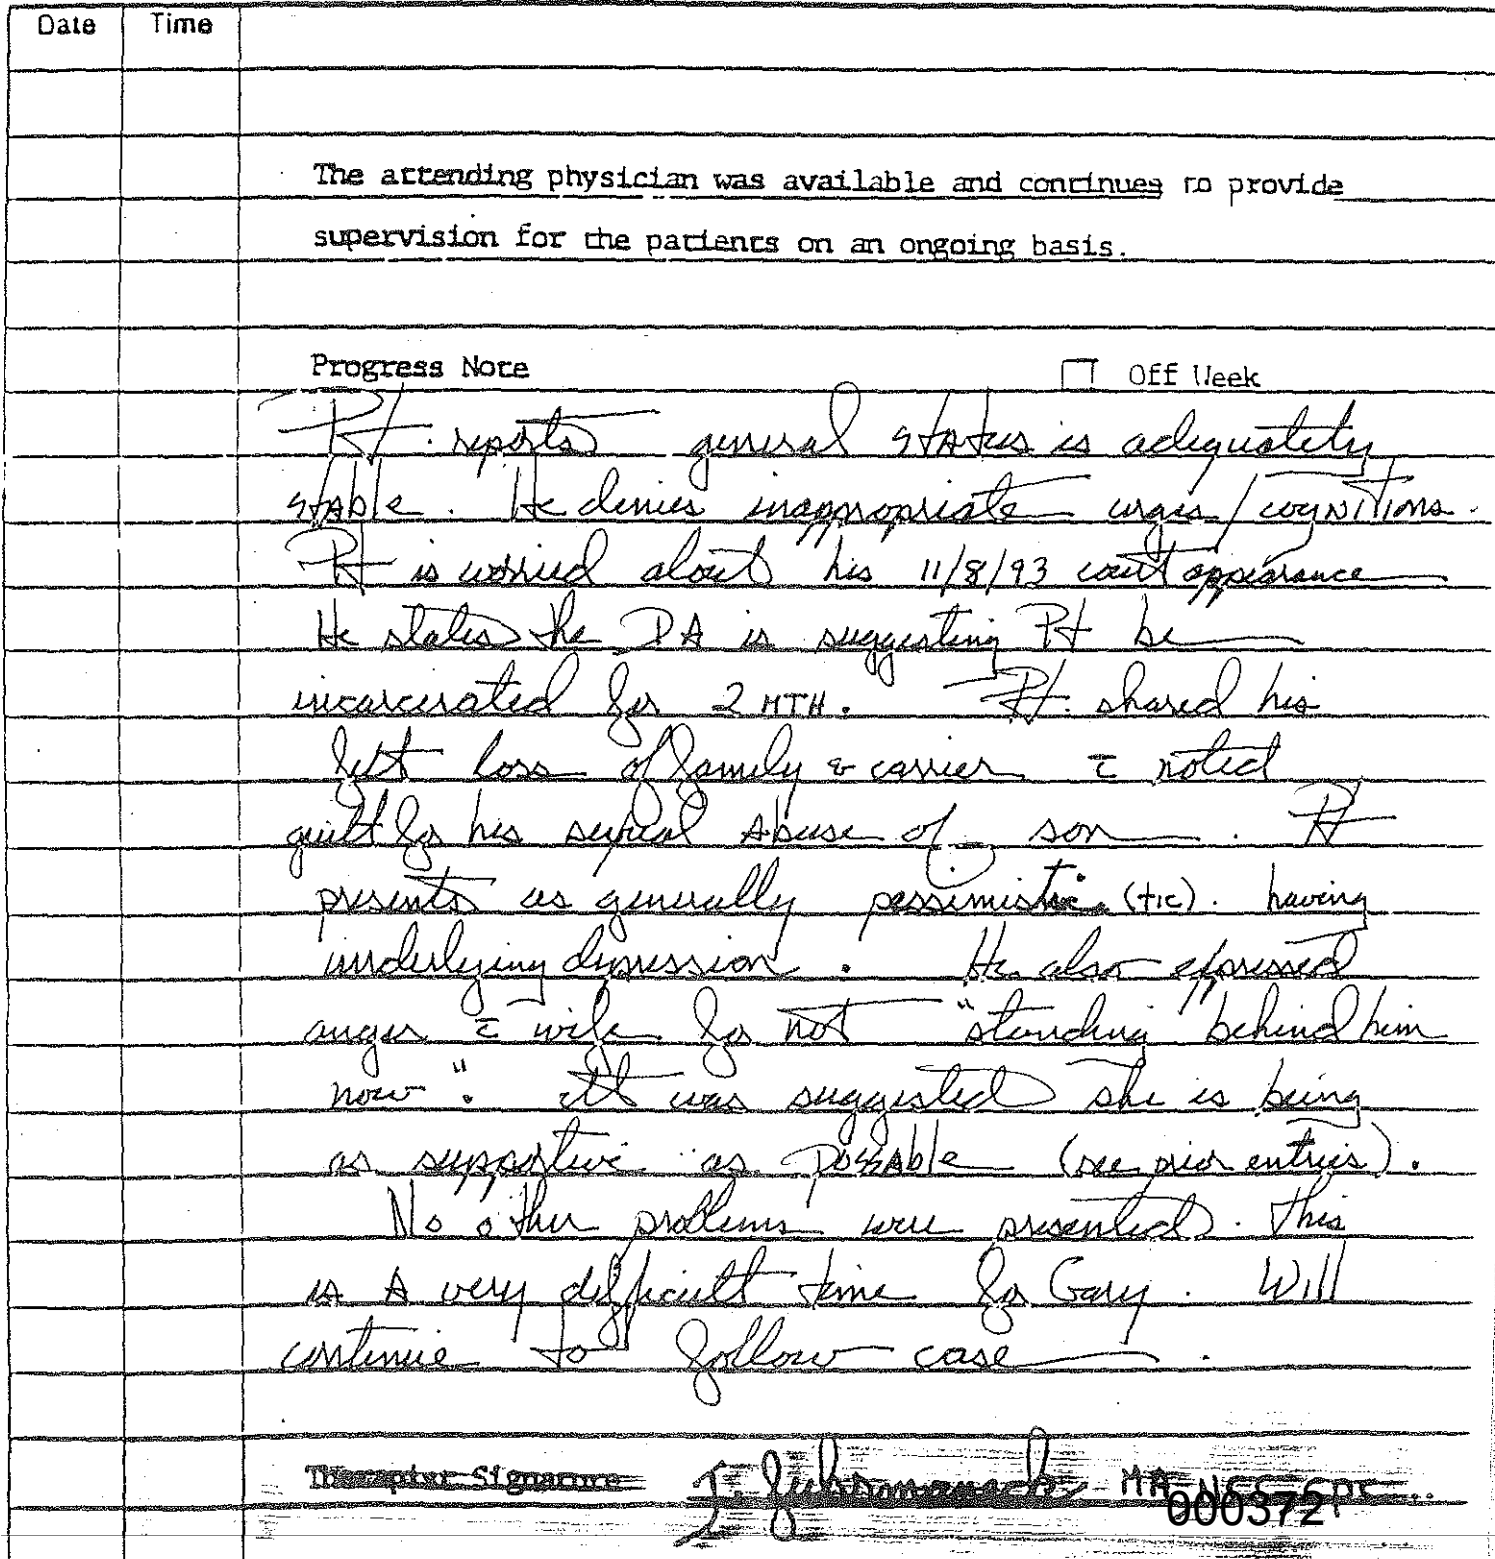 Date Time
The attending physician was available and continues to provide
supervision for the patients on an ongoing basis.
Progress Note Off Week
Pt. reports general status is adequately
stable. He denies inappropriate urges/cognitions.
Pt is worried about his 11/8/93 court appearance
He states the DA is suggesting Pt be
incarcerated for 2 MTH. Pt. shared his
felt loss of family & carrier c̄ noted
guilt for his sexual abuse of son. Pt
presents as generally pessimistic (tic). having
underlying depression. He also expressed
anger c̄ wife for not "standing behind him
now". It was suggested she is being
as supportive as possable (see prior entries).
No other problems were presented. This
is a very difficult time for Gary. Will
continue to follow case.
Therapist Signature J. MA
000372